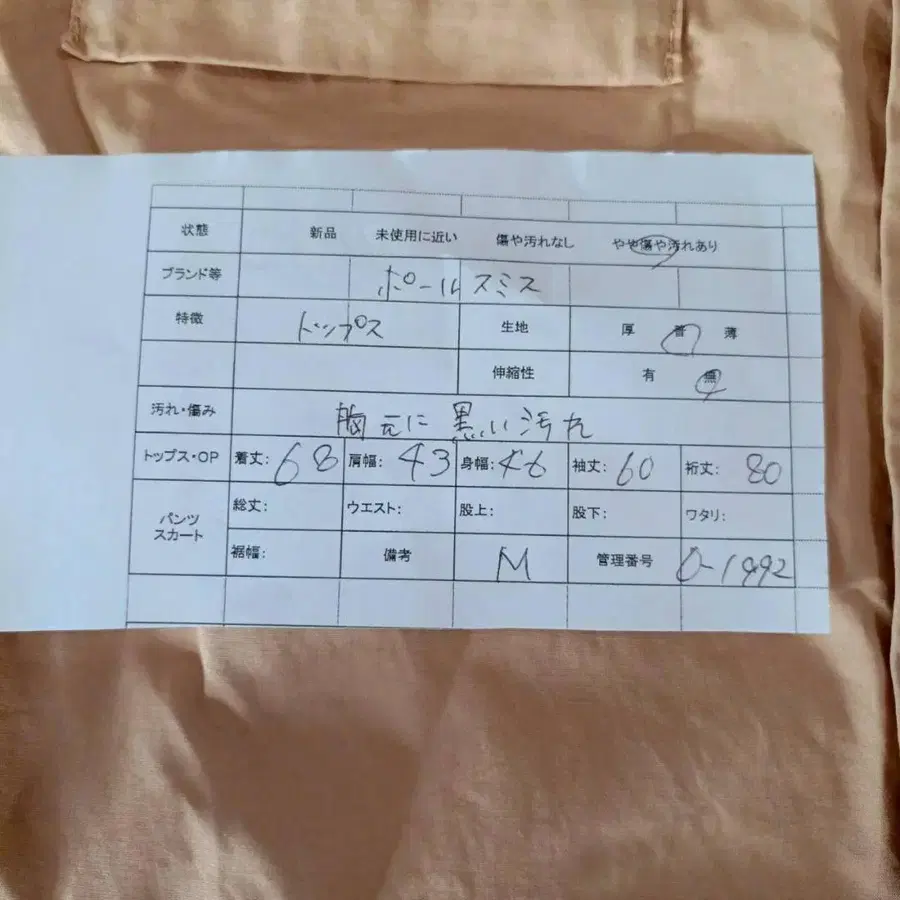 状態 新品 未使用に近い 傷や汚れなし やや傷や汚れあり
ブランド等 ポールスミス
特徴 トップス 生地 厚 普 薄
伸縮性 有 無
汚れ・傷み 胸元に黒い汚れ
トップス・OP 着丈: 68 肩幅: 43 身幅: 46 袖丈: 60 裄丈: 80
パンツ スカート 総丈: ウエスト: 股上: 股下: ワタリ:
裾幅: 備考 M 管理番号 0-1992